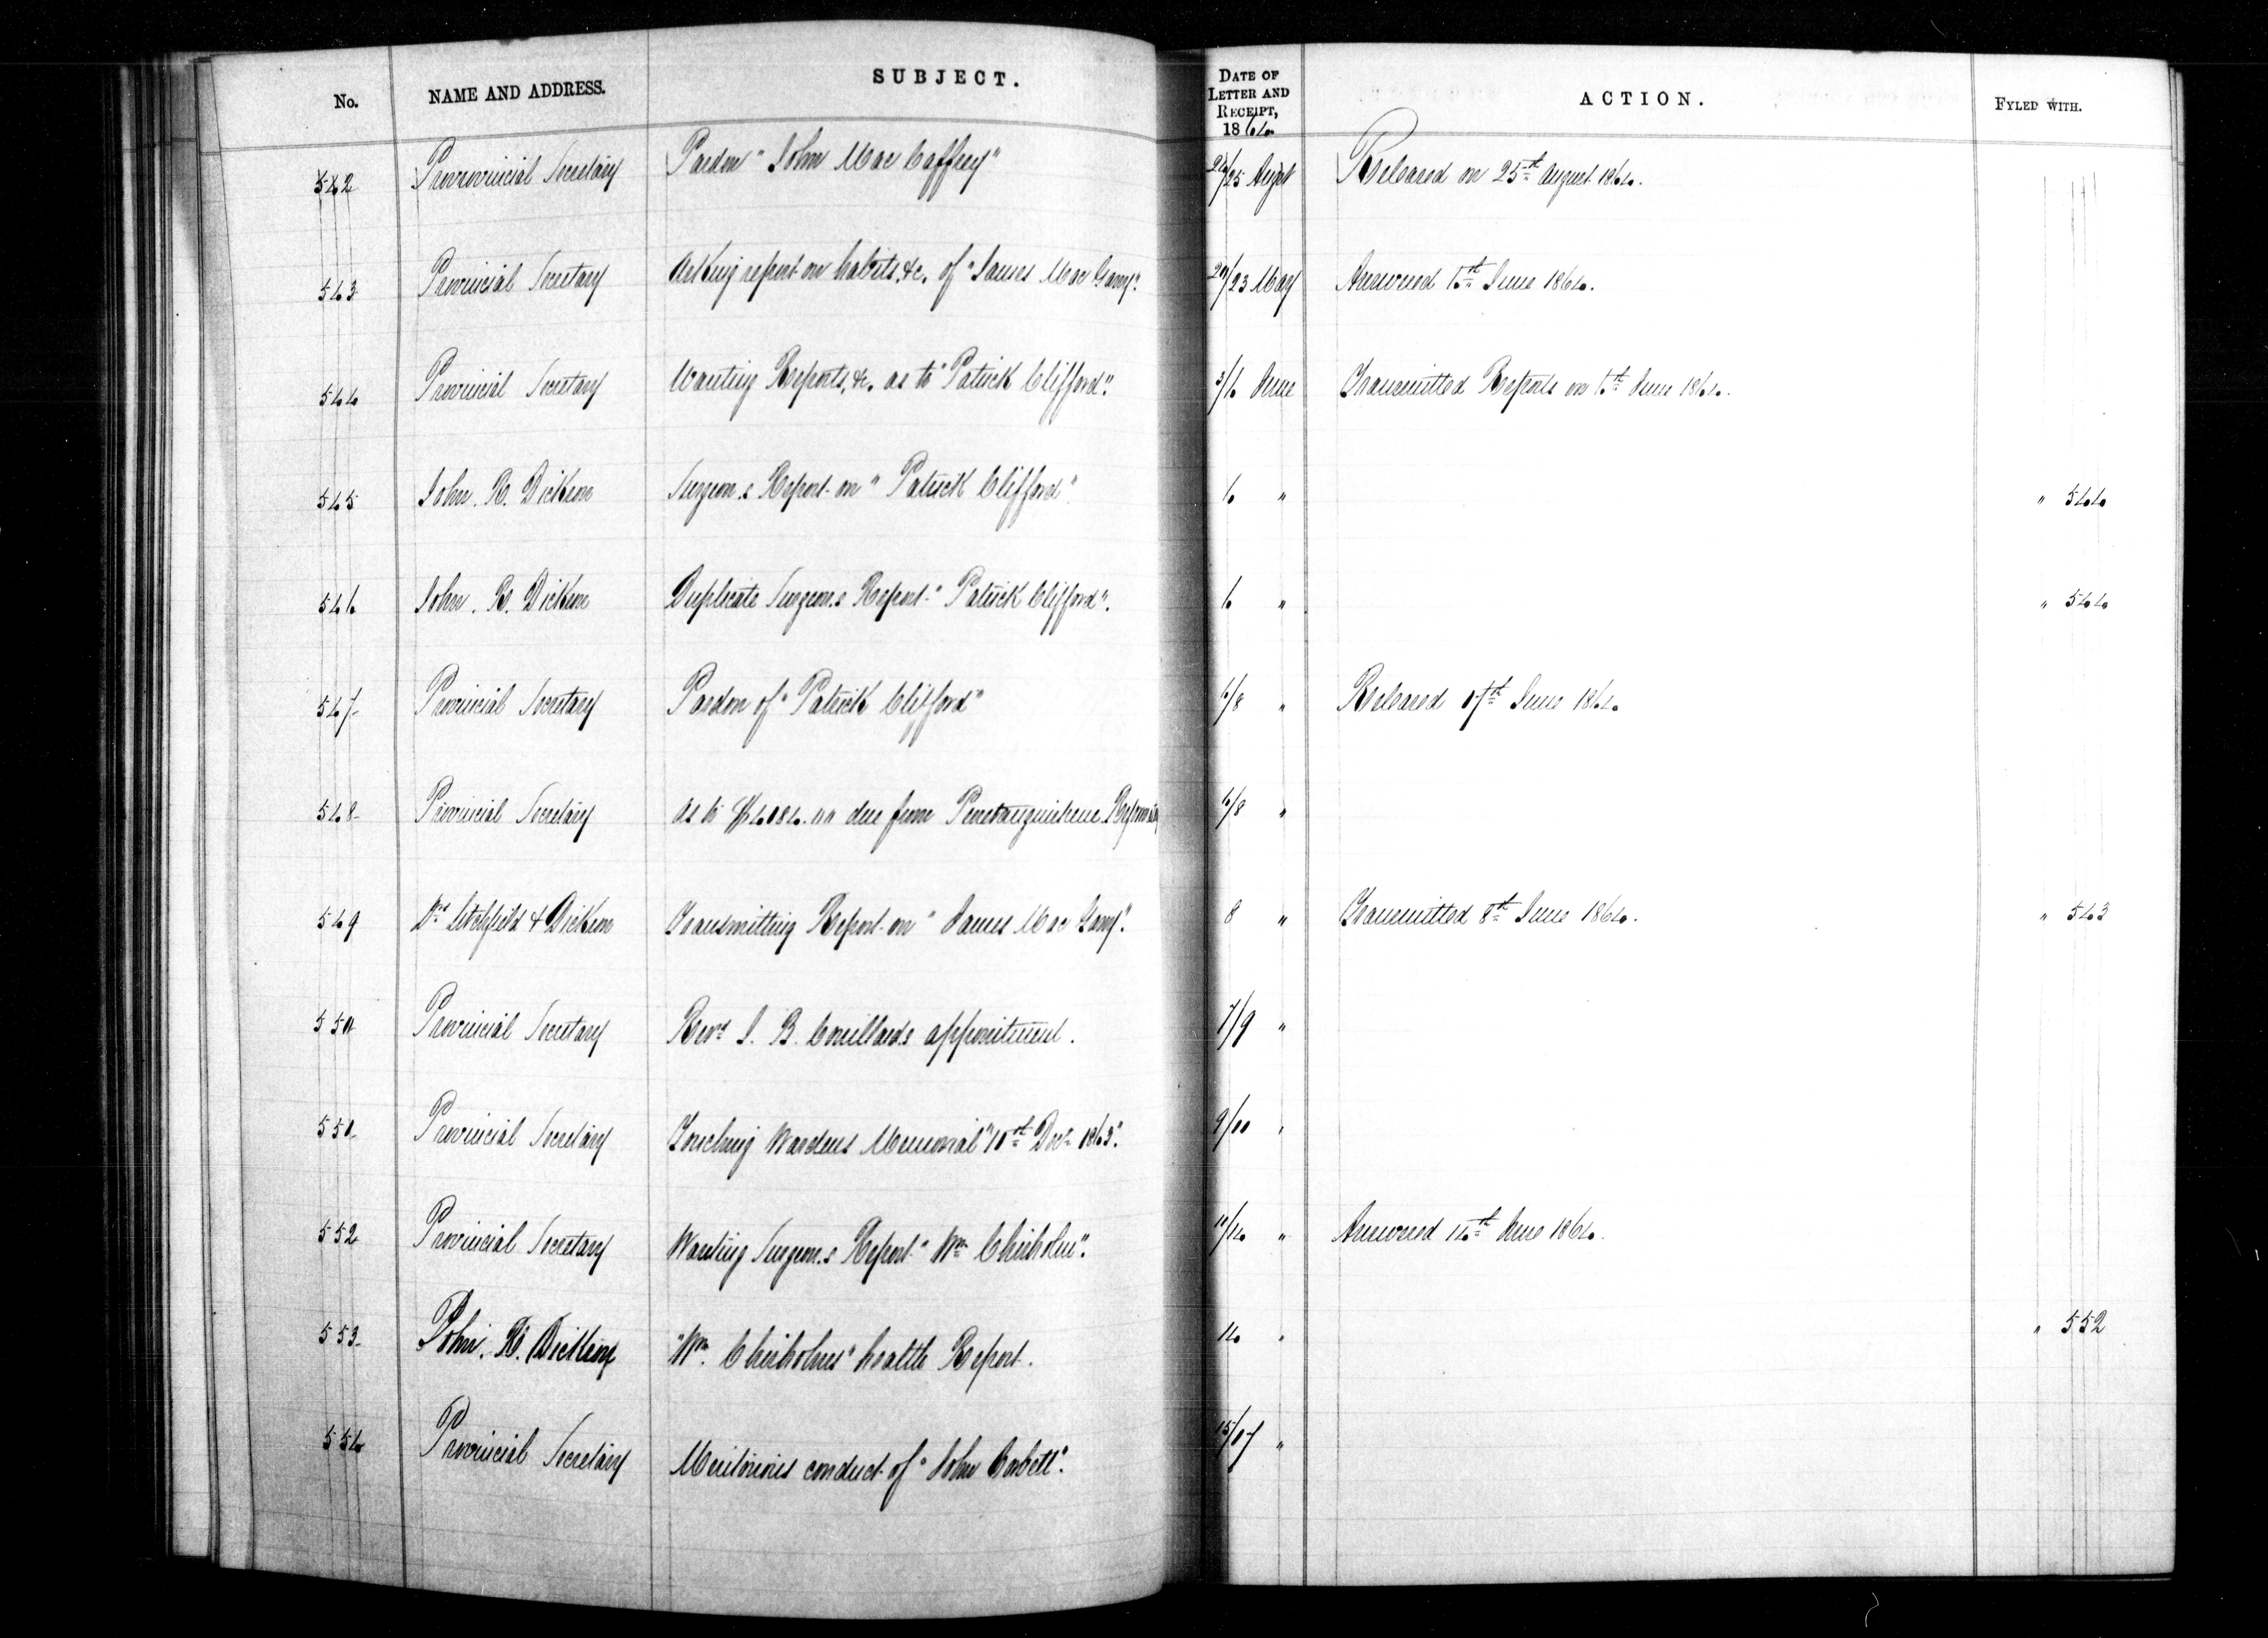 No. NAME AND ADDRESS. SUBJECT. DATE OF LETTER AND RECEIPT, 1864. ACTION. FYLED WITH.
542 Provrovincial Secretary Pardon "John Mac Caffrey" 24/25 August Released on 25th August 1864.
543 Provincial Secretary Asking report on habits, &c. of "James Mac Gamy". 20/23 May Answered 6th June 1864.
544 Provincial Secretary Wanting Reports, &c. as to "Patrick Clifford". 3/6 June Transmitted Reports on 6th June 1864.
545 John. R. Dickson Surgeon.s Report on "Patrick Clifford" 6 " " 544
546 John. R. Dickson Duplicate Surgeon.s Report "Patrick Clifford". 6 " " 544
547 Provincial Secretary Pardon of "Patrick Clifford" 6/8 " Released 17th June 1864.
548 Provincial Secretary As to $4084.00 due from Penetanguishene 6/8 "
549 Drs Litchfield & Dickson Transmitting Report on "James Mac Gamy". 8 " Transmitted 8th June 1864. " 543
550 Provincial Secretary Revd J. B. Couillards appointment. 7/9 "
551 Provincial Secretary Touching Wardens Memorial "10th Decr 1863". 9/11 "
552 Provincial Secretary Wanting Surgeon.s Report "Wm Chisholm". 10/14 " Answered 14th June 1864.
553 John. R. Dickson "Wm. Chisholms" health Report. 14 " " 552
554 Provincial Secretary Meritorious conduct of "John Corbett". 15/17 "